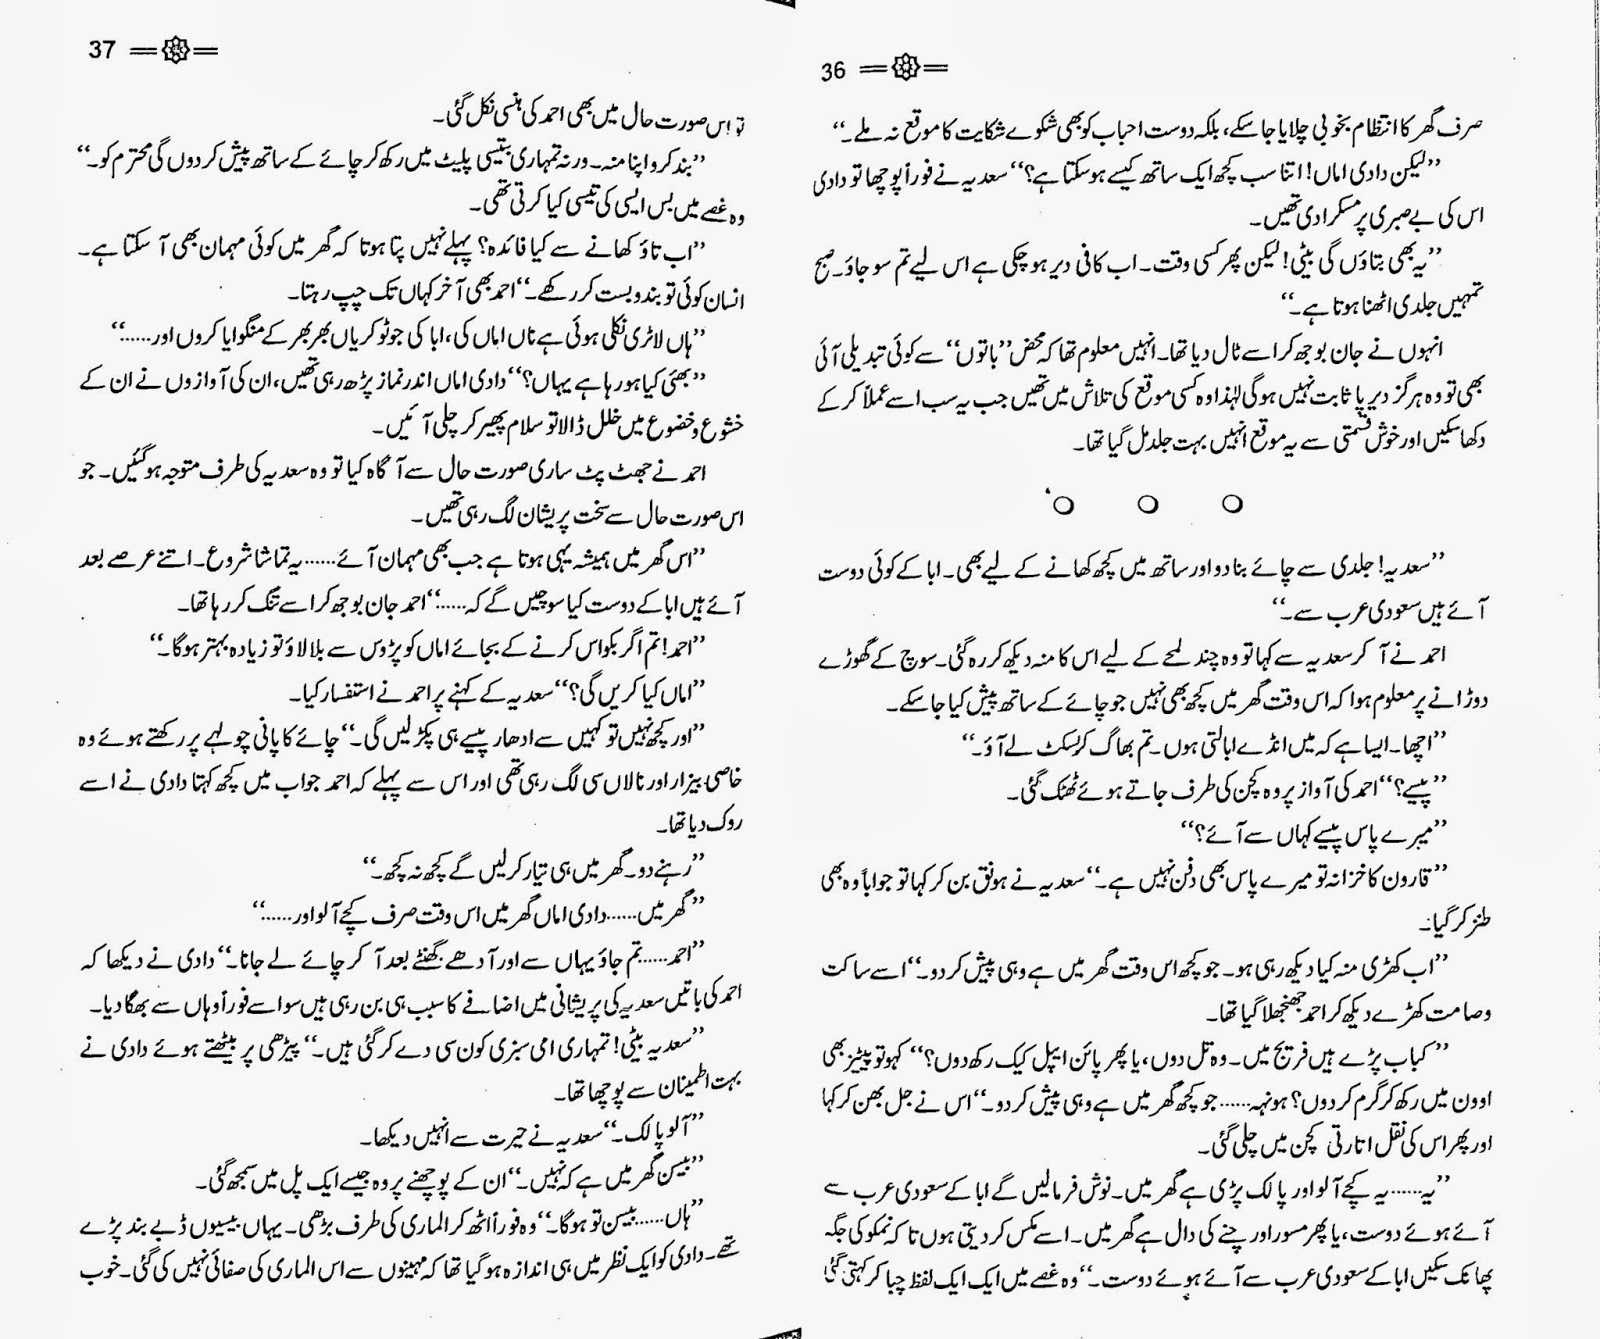 36
صرف گھر کا انتظام بخوبی چلایا جا سکے، بلکہ دوست احباب کو بھی شکوے شکایت کا موقع نہ ملے۔‘‘
’’لیکن دادی اماں! اتنا سب کچھ ایک ساتھ کیسے ہو سکتا ہے؟‘‘ سعدیہ نے فوراً پوچھا تو دادی
اس کی بے صبری پر مسکرا دی تھیں۔
’’یہ بھی بتاؤں گی بیٹی! لیکن پھر کسی وقت۔ اب کافی دیر ہو چکی ہے اس لیے تم سو جاؤ۔ صبح
تمہیں جلدی اٹھنا ہوتا ہے۔‘‘
انہوں نے جان بوجھ کر اسے ٹال دیا تھا۔ انہیں معلوم تھا کہ محض ’’باتوں‘‘ سے کوئی تبدیلی آئی
بھی تو وہ ہرگز دیرپا ثابت نہیں ہو گی لہٰذا وہ کسی موقع کی تلاش میں تھیں جب یہ سب اسے عملاً کر کے
دکھا سکیں اور خوش قسمتی سے یہ موقع انہیں بہت جلد مل گیا تھا۔
’’سعدیہ! جلدی سے چائے بنا دو اور ساتھ میں کچھ کھانے کے لیے بھی۔ ابا کے کوئی دوست
آئے ہیں سعودی عرب سے۔‘‘
احمد نے آ کر سعدیہ سے کہا تو وہ چند لمحے کے لیے اس کا منہ دیکھ کر رہ گئی۔ سوچ کے گھوڑے
دوڑانے پر معلوم ہوا کہ اس وقت گھر میں کچھ بھی نہیں جو چائے کے ساتھ پیش کیا جا سکے۔
’’اچھا۔ ایسا ہے کہ میں انڈے ابالتی ہوں۔ تم بھاگ کر بسکٹ لے آؤ۔‘‘
’’پیسے؟‘‘ احمد کی آواز پر وہ کچن کی طرف جاتے ہوئے ٹھٹک گئی۔
’’میرے پاس پیسے کہاں سے آئے؟‘‘
’’قارون کا خزانہ تو میرے پاس بھی دفن نہیں ہے۔‘‘ سعدیہ نے ہونق بن کر کہا تو جواباً وہ بھی
طنز کر گیا۔
’’اب کھڑی منہ کیا دیکھ رہی ہو۔ جو کچھ اس وقت گھر میں ہے وہی پیش کر دو۔‘‘ اسے ساکت
و صامت کھڑے دیکھ کر احمد جھنجھلا گیا تھا۔
’’کباب پڑے ہیں فریج میں۔ وہ تل دوں، یا پھر پائن ایپل کیک رکھ دوں؟‘‘ کہو تو پیٹیز بھی
اوون میں رکھ کر گرم کر دوں؟ ہونہہ...... جو کچھ گھر میں ہے وہی پیش کر دو۔‘‘ اس نے جل بھن کر کہا
اور پھر اس کی نقل اتارتی کچن میں چلی گئی۔
’’یہ...... یہ کچے آلو اور پالک پڑی ہے گھر میں۔ نوش فرما لیں گے ابا کے سعودی عرب سے
آئے ہوئے دوست، یا پھر مسور اور چنے کی دال ہے گھر میں۔ اسے مکس کر دیتی ہوں تا کہ نمکو کی جگہ
پھانک سکیں ابا کے سعودی عرب سے آئے ہوئے دوست۔‘‘ وہ غصے میں ایک ایک لفظ چبا کر کہتی گئی
37
تو اس صورت حال میں بھی احمد کی ہنسی نکل گئی۔
’’بند کرو اپنا منہ۔ ورنہ تمہاری بتیسی پلیٹ میں رکھ کر چائے کے ساتھ پیش کر دوں گی محترم کو۔‘‘
وہ غصے میں بس ایسی کی تیسی کیا کرتی تھی۔
’’اب تاؤ کھانے سے کیا فائدہ؟ پہلے نہیں پتا ہوتا کہ گھر میں کوئی مہمان بھی آ سکتا ہے۔
انسان کوئی تو بندوبست کر رکھے۔‘‘ احمد بھی آخر کہاں تک چپ رہتا۔
’’ہاں لاٹری نکلی ہوئی ہے ناں اماں کی، ابا کی جو ٹوکریاں بھر بھر کے منگوایا کروں اور......‘‘
’’بھئی کیا ہو رہا ہے یہاں؟‘‘ دادی اماں اندر نماز پڑھ رہی تھیں، ان کی آوازوں نے ان کے
خشوع و خضوع میں خلل ڈالا تو سلام پھیر کر چلی آئیں۔
احمد نے جھٹ پٹ ساری صورت حال سے آگاہ کیا تو وہ سعدیہ کی طرف متوجہ ہو گئیں۔ جو
اس صورت حال سے سخت پریشان لگ رہی تھیں۔
’’اس گھر میں ہمیشہ یہی ہوتا ہے جب بھی مہمان آئے...... یہ تماشا شروع۔ اتنے عرصے بعد
آئے ہیں ابا کے دوست کیا سوچیں گے کہ......‘‘ احمد جان بوجھ کر اسے تنگ کر رہا تھا۔
’’احمد! تم اگر بکواس کرنے کے بجائے اماں کو پڑوس سے بلا لاؤ تو زیادہ بہتر ہو گا۔‘‘
’’اماں کیا کریں گی؟‘‘ سعدیہ کے کہنے پر احمد نے استفسار کیا۔
’’اور کچھ نہیں تو کہیں سے ادھار پیسے ہی پکڑ لیں گی۔‘‘ چائے کا پانی چولہے پر رکھتے ہوئے وہ
خاصی بیزار اور نالاں سی لگ رہی تھی اور اس سے پہلے کہ احمد جواب میں کچھ کہتا دادی نے اسے
روک دیا تھا۔
’’رہنے دو۔ گھر میں ہی تیار کر لیں گے کچھ نہ کچھ۔‘‘
’’گھر میں...... دادی اماں گھر میں اس وقت صرف کچے آلو اور......‘‘
’’احمد...... تم جاؤ یہاں سے اور آدھے گھنٹے بعد آ کر چائے لے جانا۔‘‘ دادی نے دیکھا کہ
احمد کی باتیں سعدیہ کی پریشانی میں اضافے کا سبب ہی بن رہی ہیں سو اسے فوراً وہاں سے بھگا دیا۔
’’سعدیہ بیٹی! تمہاری امی سبزی کون سی دے کر گئی ہیں۔‘‘ پیڑھی پر بیٹھتے ہوئے دادی نے
بہت اطمینان سے پوچھا تھا۔
’’آلو پالک۔‘‘ سعدیہ نے حیرت سے انہیں دیکھا۔
’’بیسن گھر میں ہے کہ نہیں۔‘‘ ان کے پوچھنے پر وہ جیسے ایک پل میں سمجھ گئی۔
’’ہاں...... بیسن تو ہو گا۔‘‘ وہ فوراً اٹھ کر الماری کی طرف بڑھی۔ یہاں بیسیوں ڈبے بند پڑے
تھے۔ دادی کو ایک نظر میں ہی اندازہ ہو گیا تھا کہ مہینوں سے اس الماری کی صفائی نہیں کی گئی۔ خوب